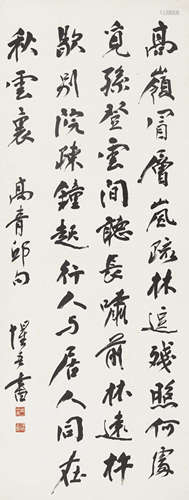 高嶺冒層嵐疏林逗殘照何處
覓孫登雲間聽長嘯前林遠杵
歇別院疎鐘起行人与居人同在
秋雲裏 高青邱句 惺吾書